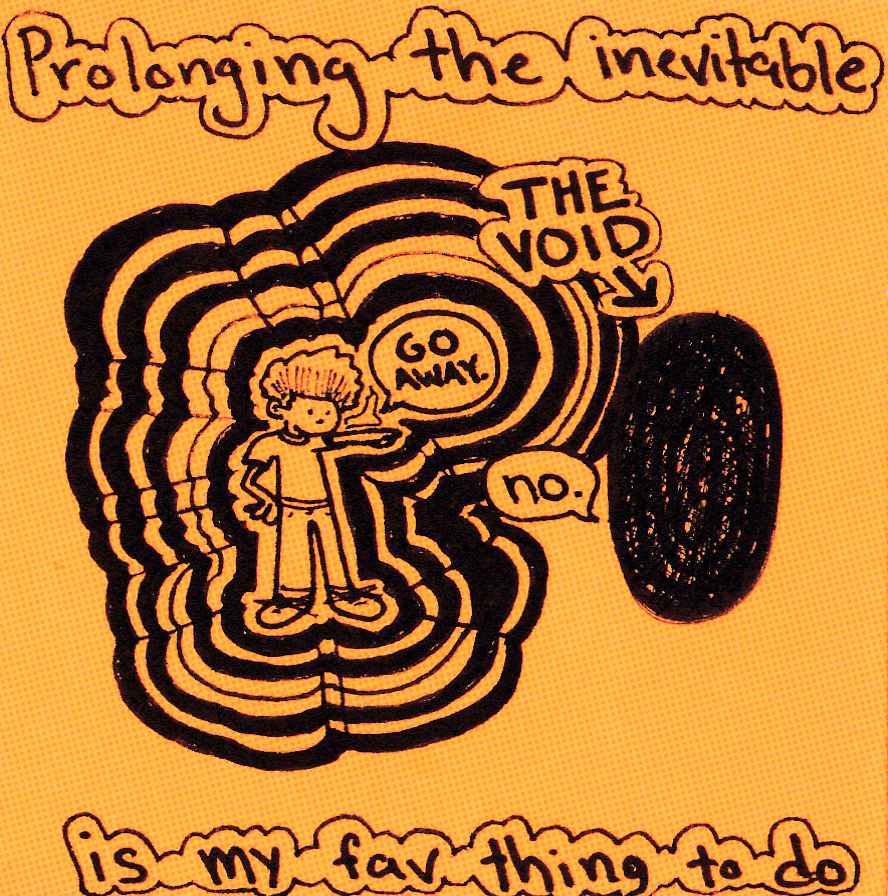 Prolonging the inevitable
THE
VOID
GO
AWAY.
no.
is my fav thing to do